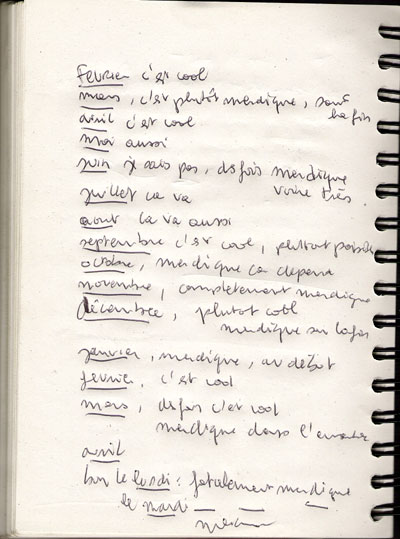 Fevrier c'est cool
mars, c'est plutôt merdique, sauf
la fin
avril c'est cool
mai aussi
juin je sais pas, des fois merdique
voire très.
juillet ca va
aout ca va aussi
septembre c'est cool, plutot
octobre, merdique ca depend
novembre, completement merdique
décembre, plutot cool
merdique sur la fin
janvier, merdique, au début
fevrier, c'est cool
mars, des fois c'est cool
merdique dans l'ensemble
avril
bon le lundi: fatalement merdique
le mardi